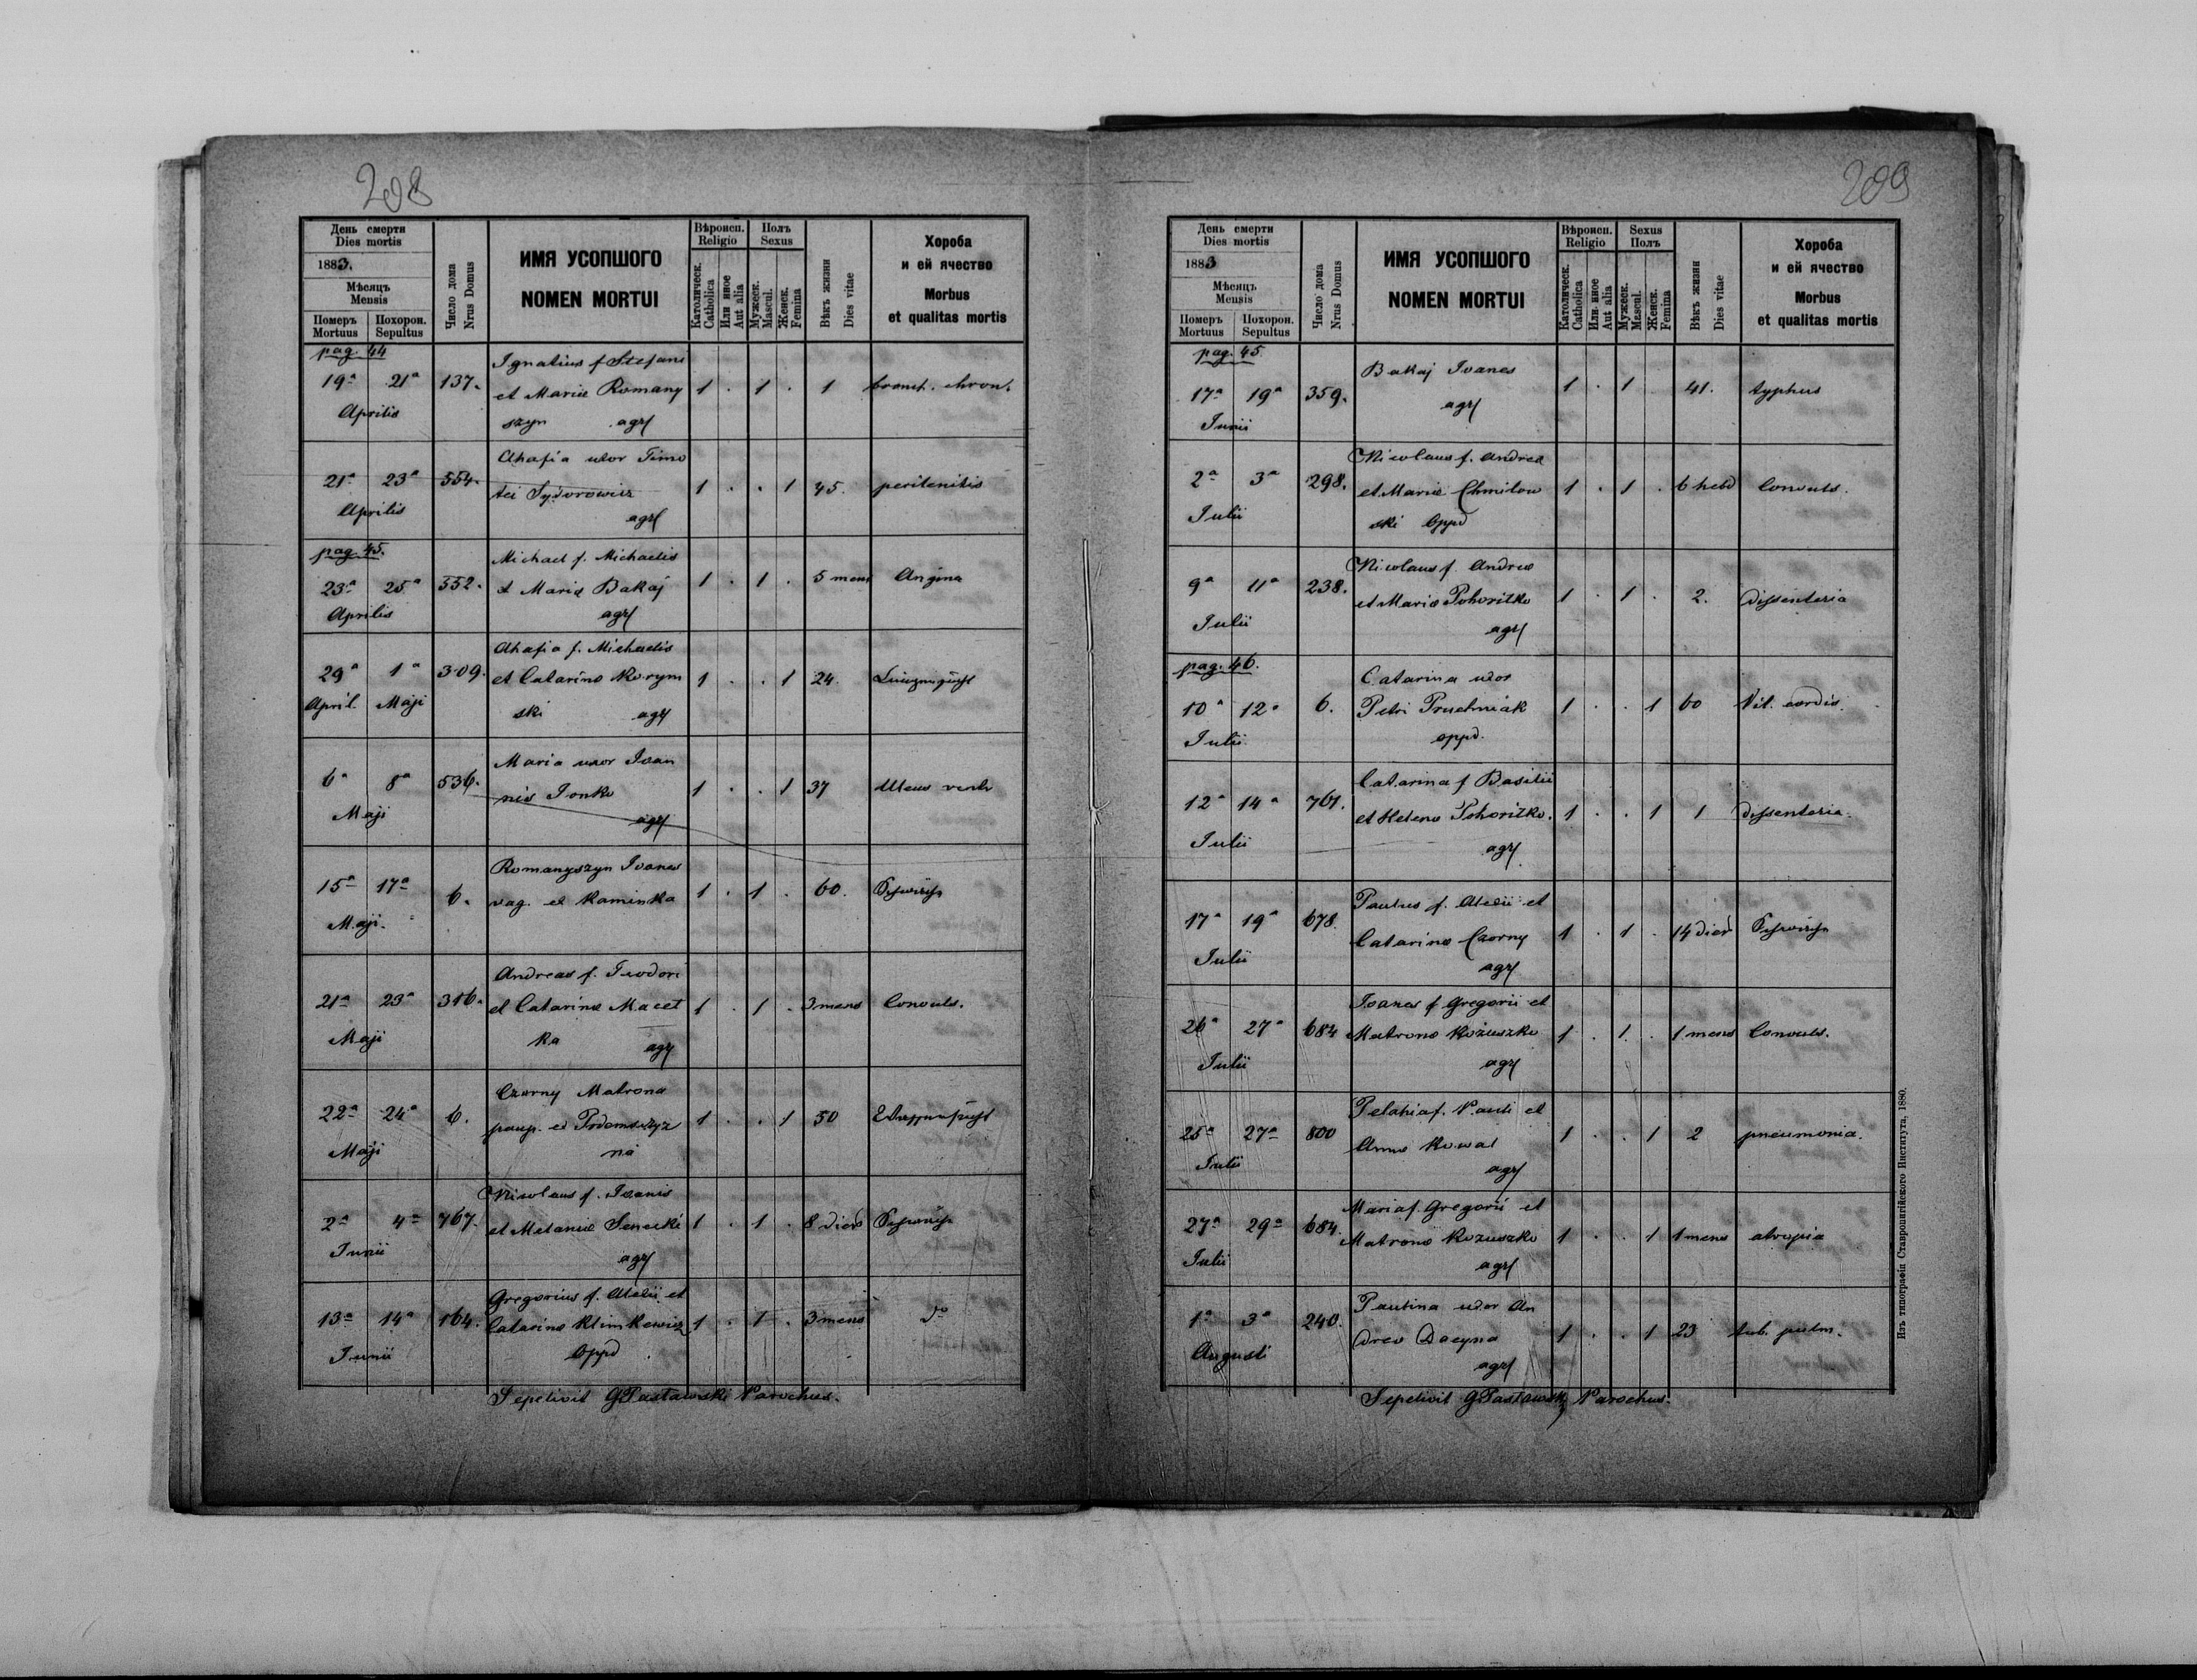 208
День смерти
Dies mortis
1883.
Мѣсяцъ
Mensis
Померъ Похорон.
Mortuus Sepultus
Число дома
Nrus Domus
ИМЯ УСОПШОГО
NOMEN MORTUI
Вѣроисп.
Religio
Католическ.
Catholica
Или иное
Aut alia
Полъ
Sexus
Мужеск.
Mascul.
Женск.
Femina
Вѣкъ жизни
Dies vitae
Хороба
и ей ячество
Morbus
et qualitas mortis
pag. 44
Ignatius f Stefani
19ª 21ª 137. et Maria Romany 1 . 1 . 1 bronch. chron.
Aprilis szyn agr
Ahafia uxor Timo
21ª 23ª 554. tei Sydorowicz 1 . . 1 45. peritenitis
Aprilis agr
pag. 45.
Michael f. Michaelis
23ª 25ª 552. et Maria Bakaj 1 . 1 . 5 mens Angina
Aprilis agr
Ahafia f. Michaelis
29ª 1ª 309. et Catarina Korym 1 . . 1 24.
April. Maji ski agr
Maria uxor Ioan
6ª 8ª 536. nis Ionko 1 . . 1 37 Ulcus ventr
Maji agr
Romanyszyn Ioanes
15ª 17ª 6. vag. ex Kaminka 1 . 1 . 60.
Maji.
Andreas f. Teodori
21ª 23ª 316. et Catarina Macet 1 . 1 . 3 mens Convuls.
Maji ka agr
Czorny Matrona
22ª 24ª 6. paup. ex Podemszyz 1 . . 1 50
Maji na
Nicolaus f. Ioanis
2ª 4ª 767. et Melania Senecki 1 . 1 . 8 dies
Iunii agr
Gregorius f. Alexii et
13ª 14ª 164. Catarina Klimkewicz 1 . 1 . 3 mens do
Iunii Oppd
Sepelivit GPastawski Parochus.
209
День смерти
Dies mortis
1883
Мѣсяцъ
Mensis
Померъ Похорон.
Mortuus Sepultus
Число дома
Nrus Domus
ИМЯ УСОПШОГО
NOMEN MORTUI
Вѣроисп.
Religio
Католическ.
Catholica
Или иное
Aut alia
Sexus
Полъ
Мужеск.
Mascul.
Женск.
Femina
Вѣкъ жизни
Dies vitae
Хороба
и ей ячество
Morbus
et qualitas mortis
pag. 45.
Bakaj Ioanes
17ª 19ª 359. 1 . 1 41. typhus
Iunii agr
Nicolaus f. Andrea
2ª 3ª 298. et Maria Chmilow 1 . 1 . 6 hebd Convuls.
Iulii ski Oppd
Nicolaus f. Andrea
9ª 11ª 238. et Maria Pohoritko 1 . 1 . 2. dissenteria
Iulii agr
pag. 46.
Catarina uxor
10ª 12ª 6. Petri Pruchniak 1 . . 1 60 Vit. cordis.
Iulii oppd.
Catarina f Basilii
12ª 14ª 767. et Helena Pohoritko. 1 . . 1 1 dissenteria.
Iulii agr
Paulus f. Alexii et
17ª 19ª 678. Catarina Czorny 1 . 1 . 14 dies
Iulii agr
Ioanes f Gregorii et
26ª 27ª 684 Matrona Kożuszko 1 . 1 . 1 mens Convuls.
Iulii agr
Pelahia f. Pauli et
25ª 27ª 800 Anna Kowal 1 . . 1 2 pneumonia.
Iulii agr
Maria f. Gregorii et
27ª 29ª 684. Matrona Kozuszko 1 . . 1 1 mens atropia
Iulii agr
Paulina uxor An
1ª 3ª 240. drea Dacyna 1 . . 1 23 tub. pulm.
Augusti agr
Sepelivit GPastawski Parochus.
Изъ типографіи Ставропигійского Института. 1880.